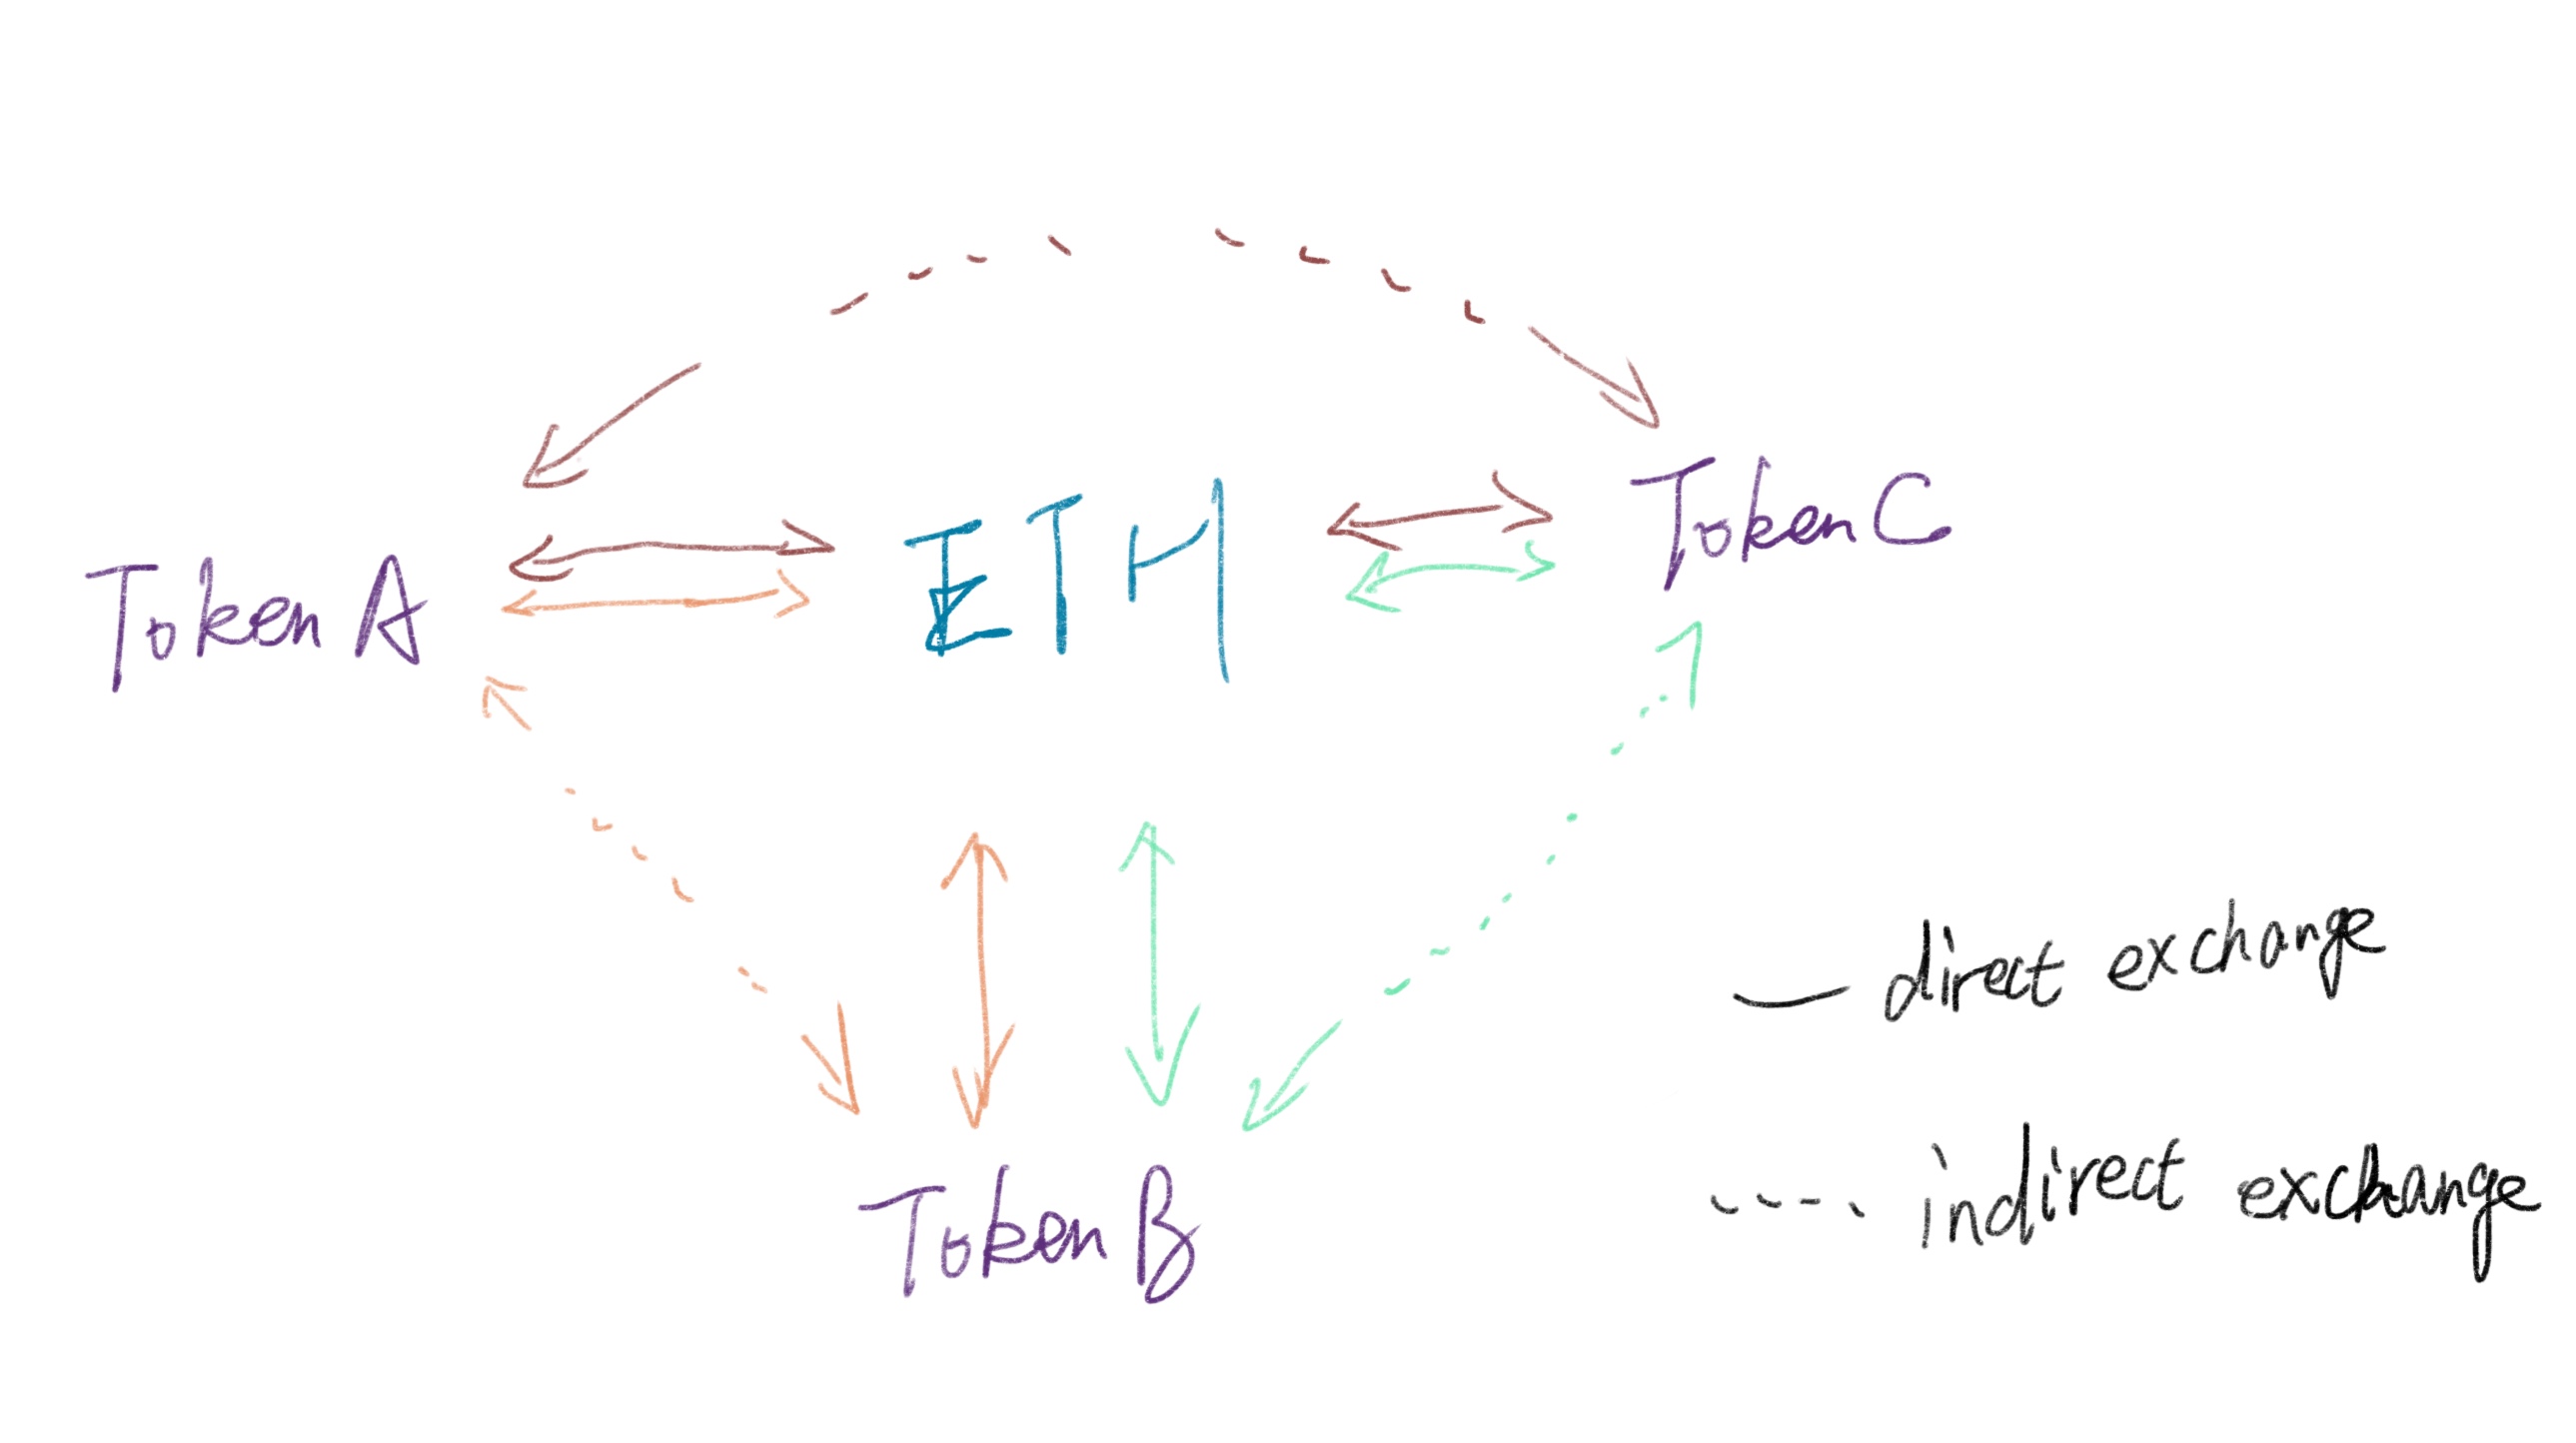 Token A
ETH
Token C
Token B
direct exchange
indirect exchange